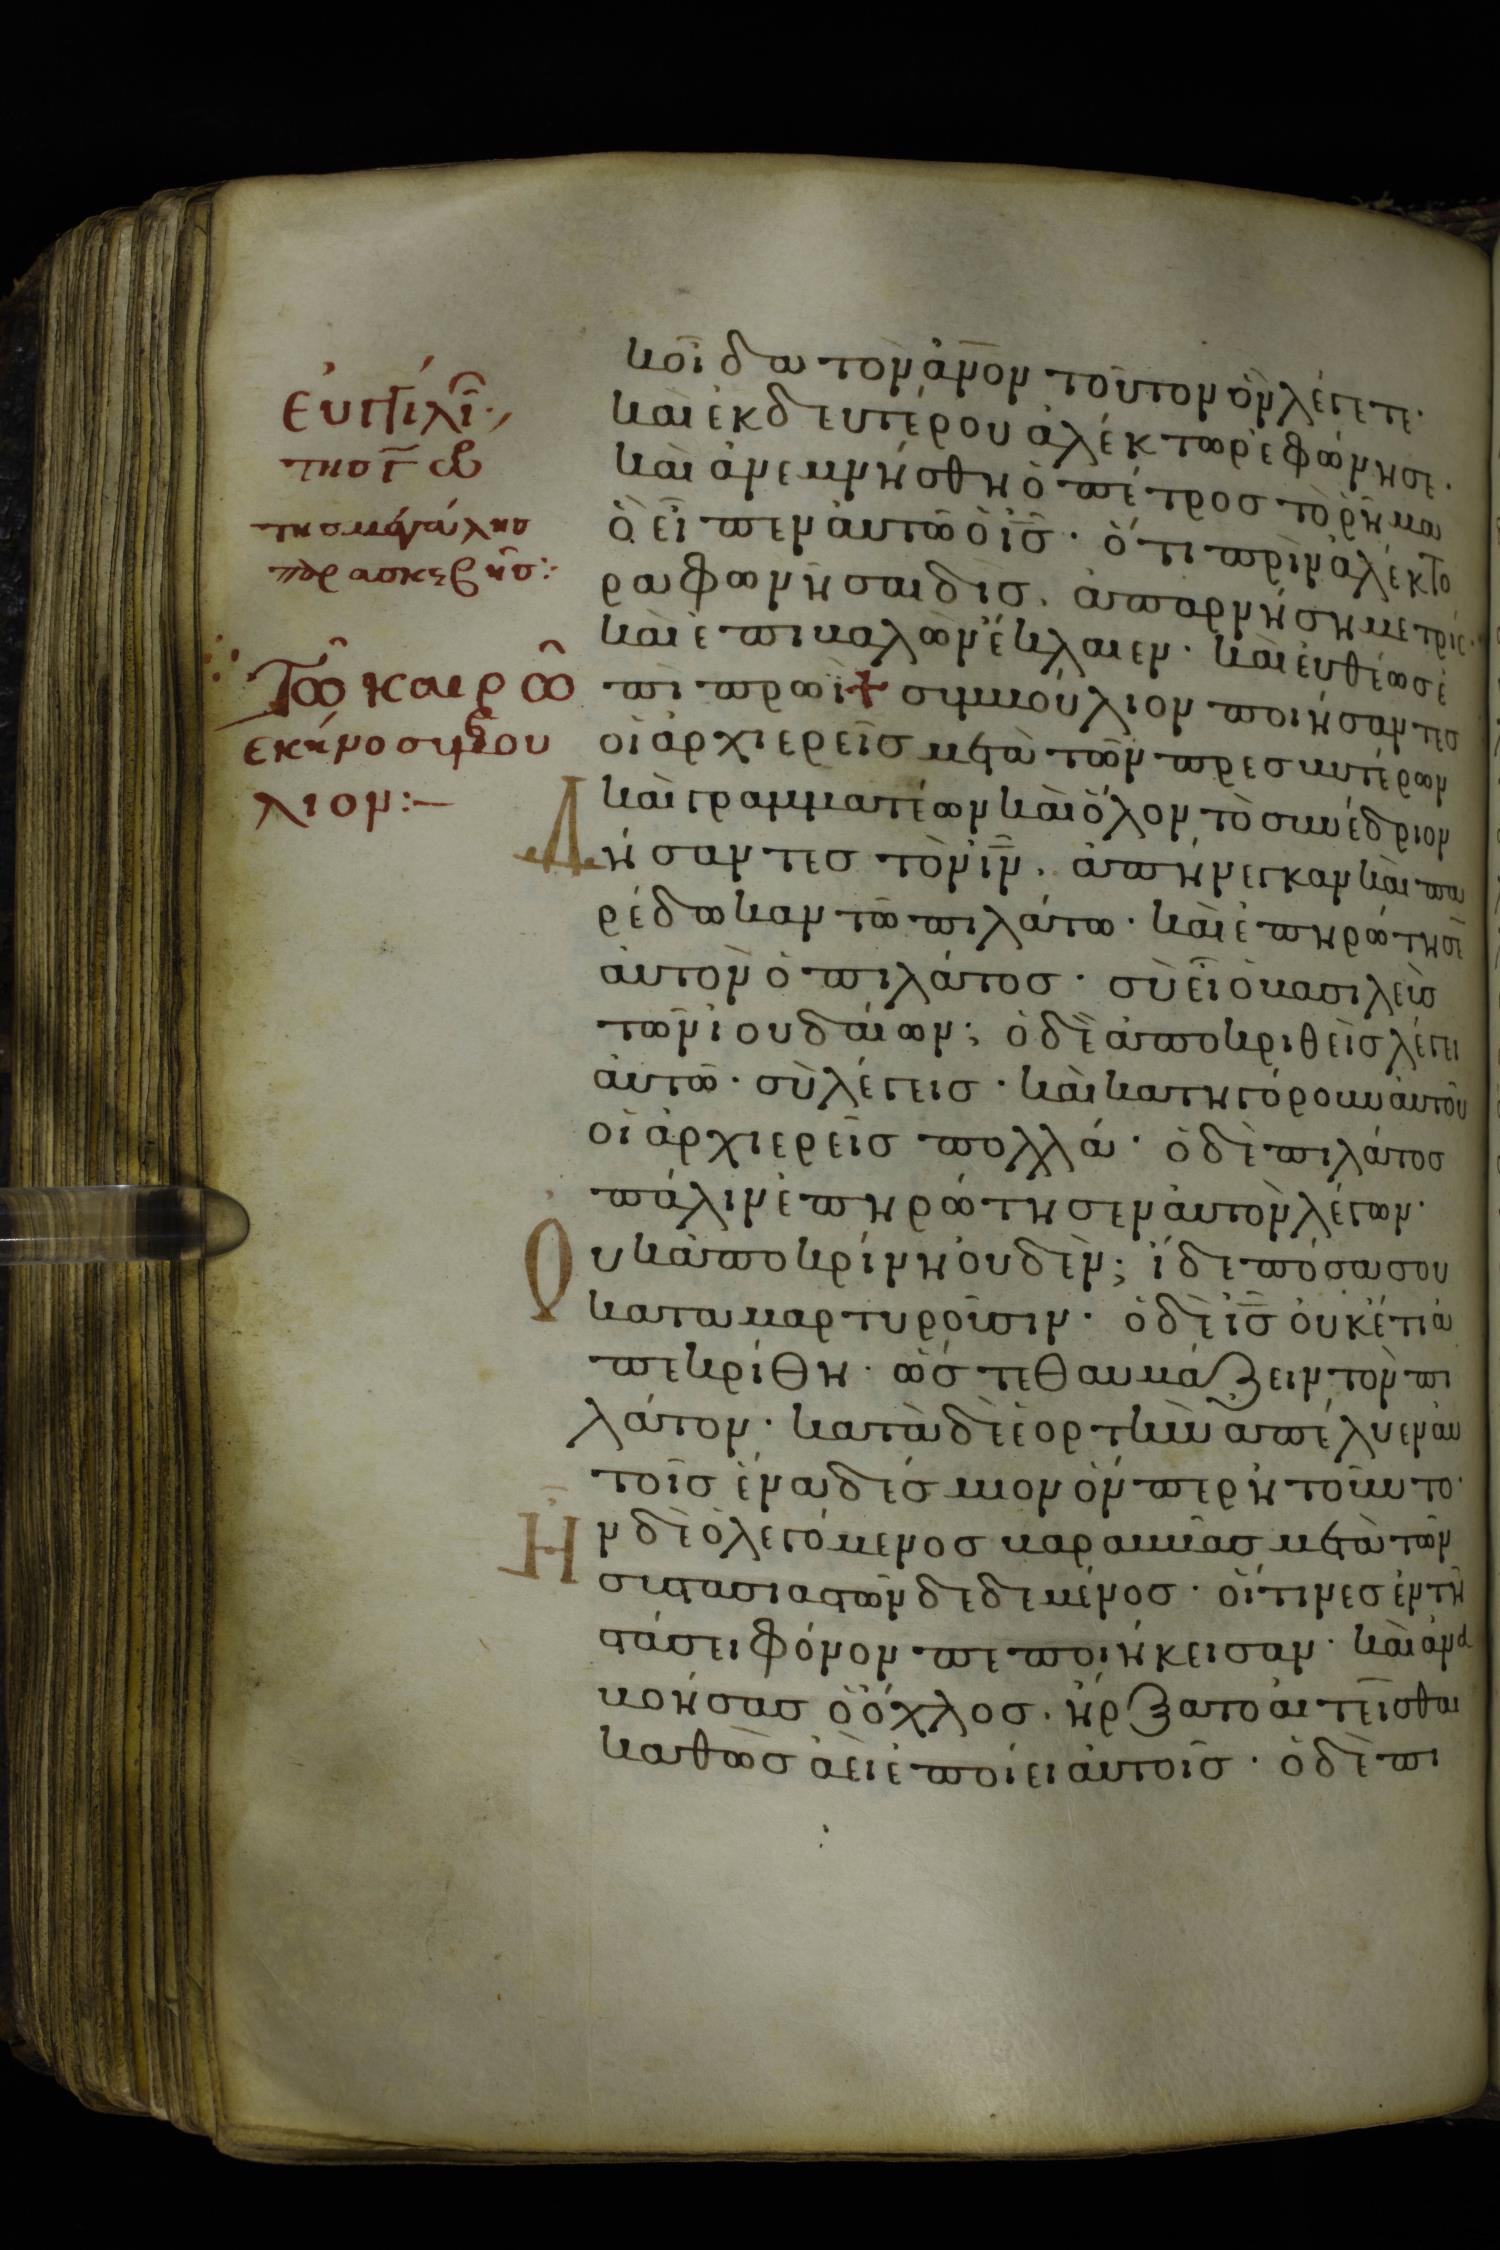 εὐαγγελιον
της γ ω
της μεγάλης
παρασκευῆς:
Τῶ καιρῶ
εκείνο συμβου
λιον:—
κ οἶδα τὸν ἄνον τοῦτον ὃν λέγετε.
καὶ ἐκ δευτέρου ἀλέκτωρ ἐφώνησε.
καὶ ἀνεμνήσθη ὁ πέτρος τὸ ῥῆμα
ὃ εἶπεν αὐτῶ ὁ ις̅. ὅτι πρὶν ἀλέκτο
ρα φωνῆσαι δὶς. ἀπαρνήση με τρίς.
καὶ ἐπιβαλὼν ἔκλαιεν. καὶ εὐθέως
ἐπὶ τὸ πρωῒ + συμβούλιον ποιήσαντες
οἱ ἀρχιερεῖς μετὰ τῶν πρεσβυτέρων
καὶ γραμματέων καὶ ὅλον τὸ συνέδριον
Δήσαντες τὸν ιν̅. ἀπήνεγκαν καὶ πα
ρέδωκαν τῶ πιλάτω. καὶ ἐπηρώτησεν
αὐτον ὁ πιλάτος. σὺ εἶ ὁ βασιλεὺς
τῶν ἰουδαίων; ὁ δὲ ἀποκριθεὶς λέγει
αὐτῶ. σὺ λέγεις. καὶ κατηγόρουν αὐτοῦ
οἱ ἀρχιερεῖς πολλά. ὁ δὲ πιλάτος
πάλιν ἐπηρώτησεν αὐτὸν λέγων.
Ουκ ἀποκρίνη οὐδὲν; ἴδε πόσα σου
καταμαρτυροῦσιν. ὁ δὲ ις̅ οὐκέτι ἀ
πεκρίθη. ὥστε θαυμάζειν τὸν πι
λάτον. κατὰ δὲ ἑορτὴν ἀπέλυεν αὐ
τοῖς ἕνα δέσμιον ὅνπερ ἠτοῦντο.
Ἦν δὲ ὁ λεγόμενος βαραββᾶς μετὰ τῶν
συστασιαστῶν δεδεμένος. οἵτινες ἐν τῆ
στάσει φόνον πεποιήκεισαν. καὶ ἀνα
βοήσας ὁ ὄχλος. ἤρξατο αἰτεῖσθαι
καθὼς ἀεὶ ἐποίει αὐτοῖς. ὁ δὲ πι